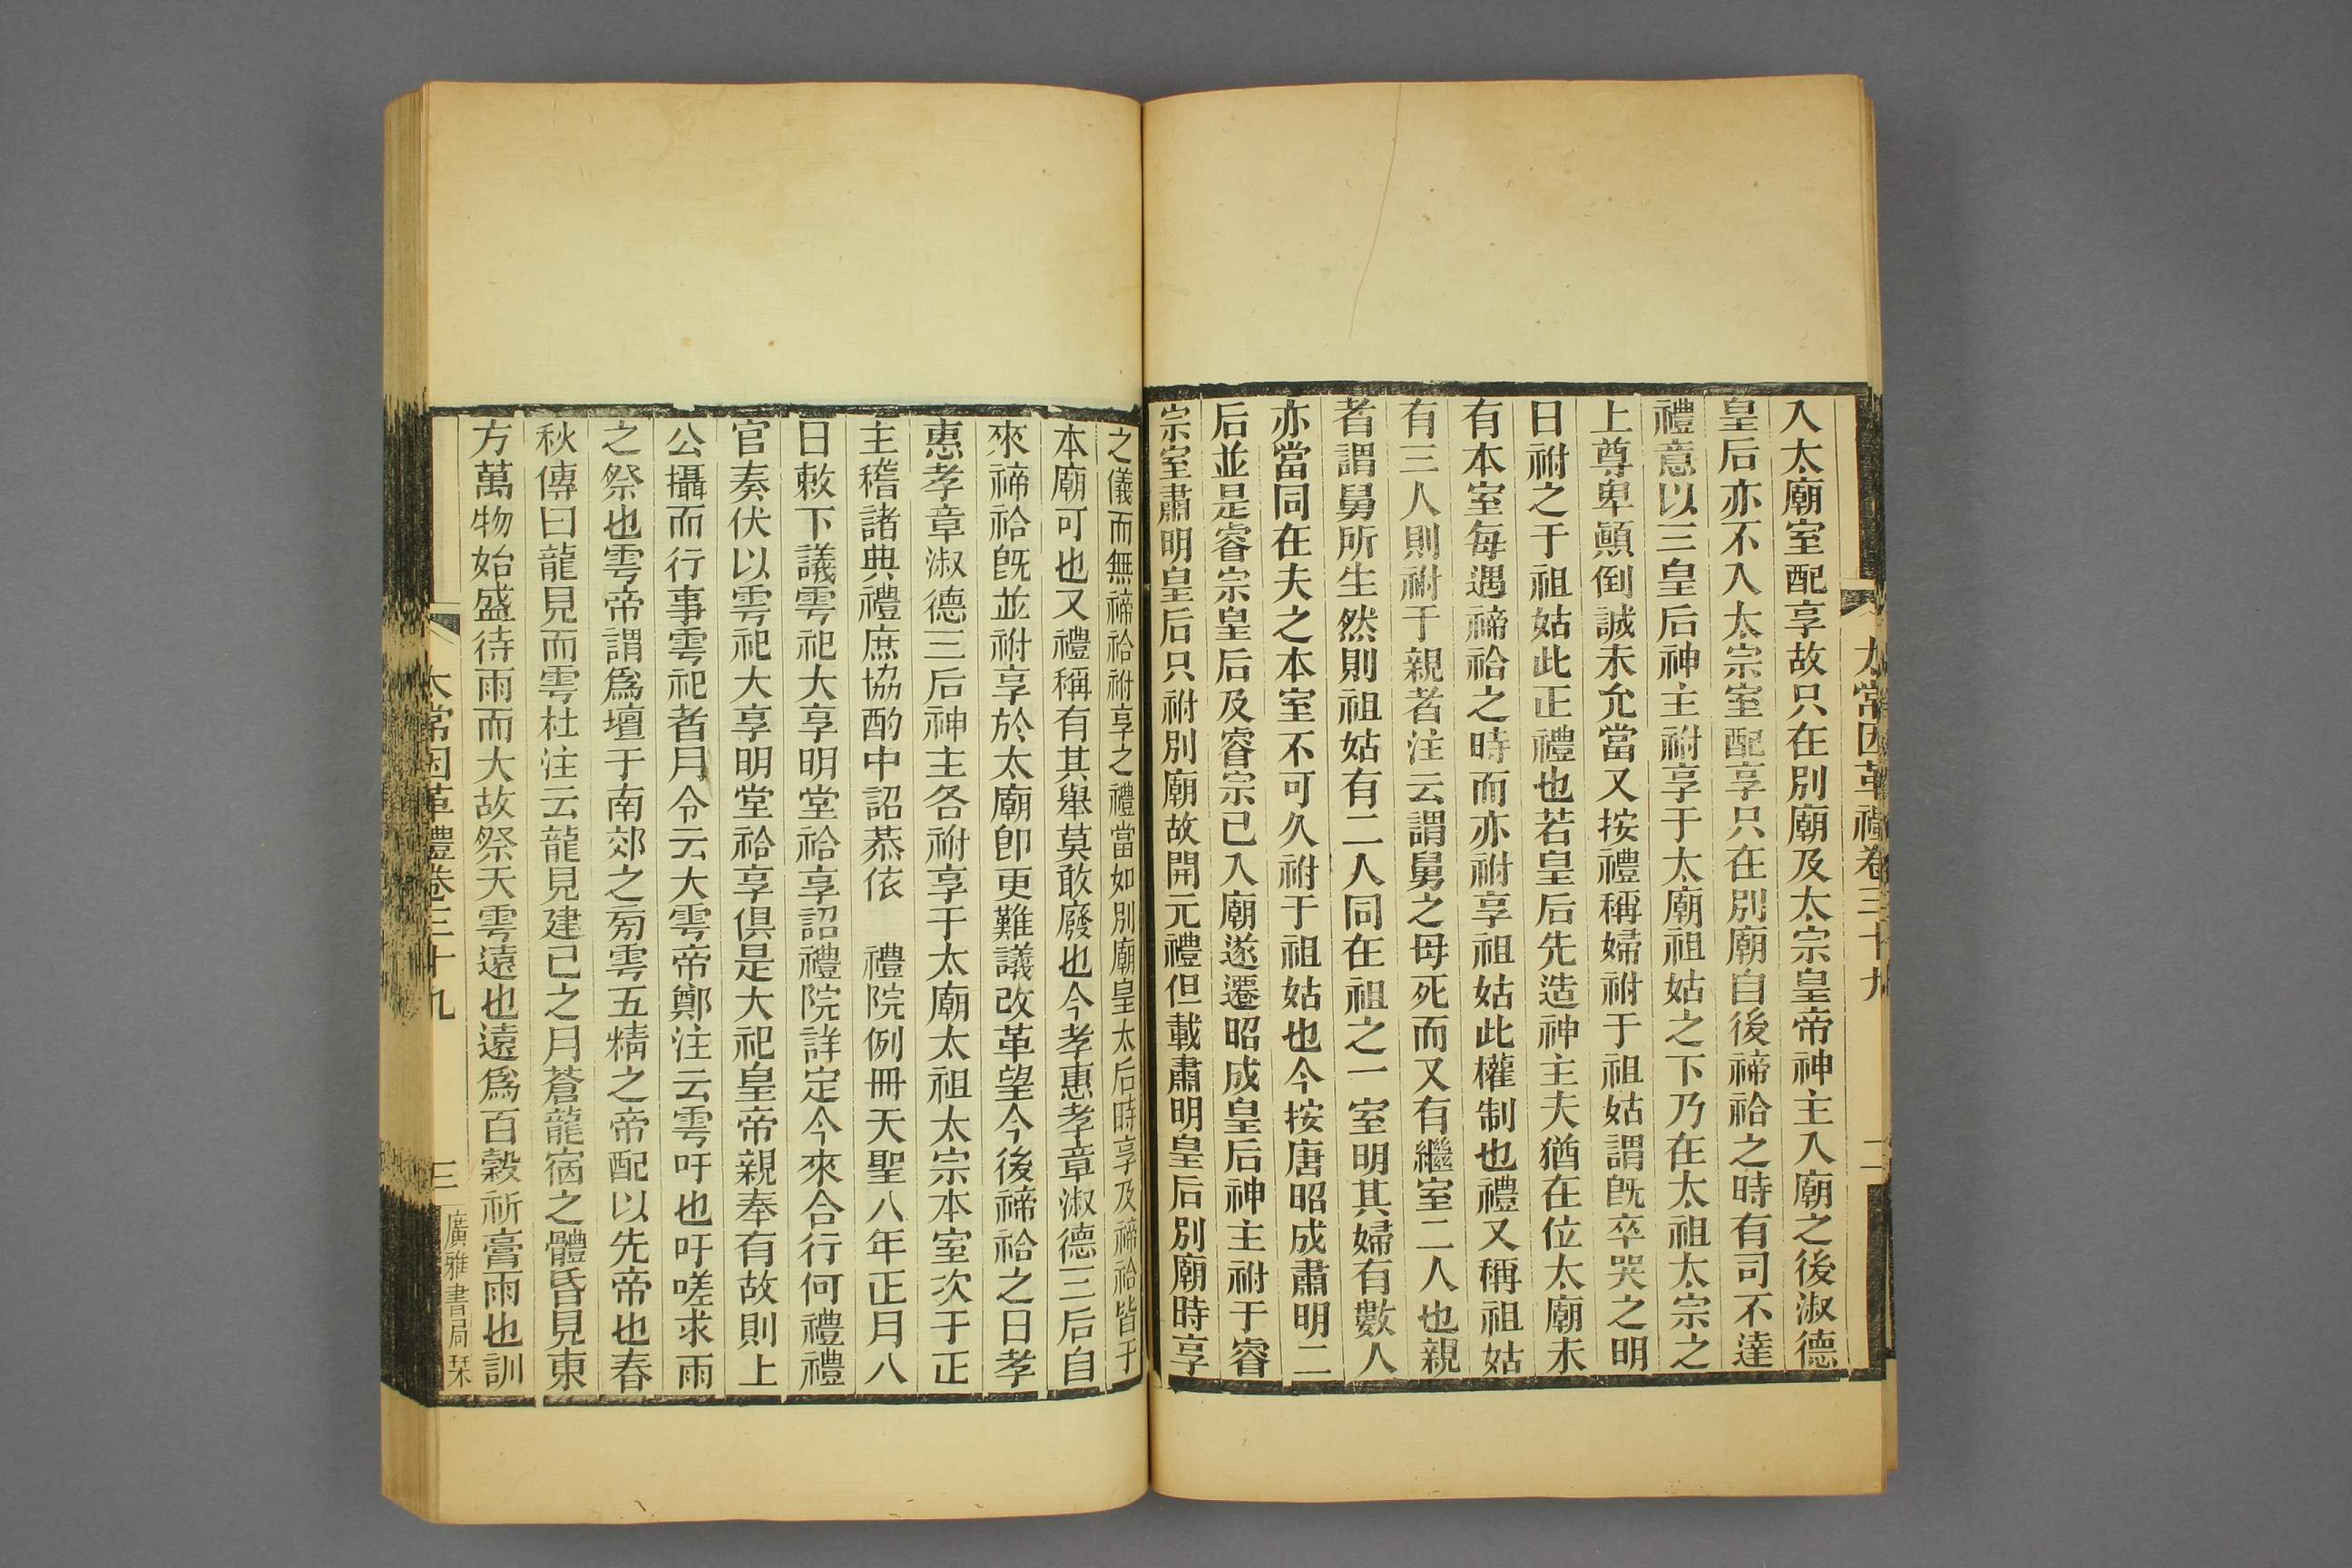 太常因革禮卷三十九 二
入太廟室配享故只在別廟及太宗皇帝神主入廟之後淑德
皇后亦不入太宗室配享只在別廟自後禘祫之時有司不達
禮意以三皇后神主祔享于太廟祖姑之下乃在太祖太宗之
上尊卑顚倒誠未允當又按禮稱婦祔于祖姑謂旣卒哭之明
日祔之于祖姑此正禮也若皇后先造神主夫猶在位太廟未
有本室每遇禘祫之時而亦祔享祖姑此權制也禮又稱祖姑
有三人則祔于親者注云謂舅之母死而又有繼室二人也親
者謂舅所生然則祖姑有二人同在祖之一室明其婦有數人
亦當同在夫之本室不可久祔于祖姑也今按唐昭成肅明二
后並是睿宗皇后及睿宗已入廟遂遷昭成皇后神主祔于睿
宗室肅明皇后只祔別廟故開元禮但載肅明皇后別廟時享
之儀而無禘祫祔享之禮當如別廟皇太后時享及禘祫皆于
本廟可也又禮稱有其舉莫敢廢也今孝惠孝章淑德三后自
來禘祫旣並祔享於太廟卽更難議改革望今後禘祫之日孝
惠孝章淑德三后神主各祔享于太廟太祖太宗本室次于正
主稽諸典禮庶協酌中詔恭依 禮院例冊天聖八年正月八
日敕下議雩祀大享明堂祫享詔禮院詳定今來合行何禮禮
官奏伏以雩祀大享明堂祫享俱是大祀皇帝親奉有故則上
公攝而行事雩祀者月令云大雩帝鄭注云雩吁也吁嗟求雨
之祭也雩帝謂爲壇于南郊之旁雩五精之帝配以先帝也春
秋傳曰龍見而雩杜注云龍見建巳之月蒼龍宿之體昏見東
方萬物始盛待雨而大故祭天雩遠也遠爲百穀祈膏雨也訓
太常因革禮卷三十九 三 廣雅書局栞